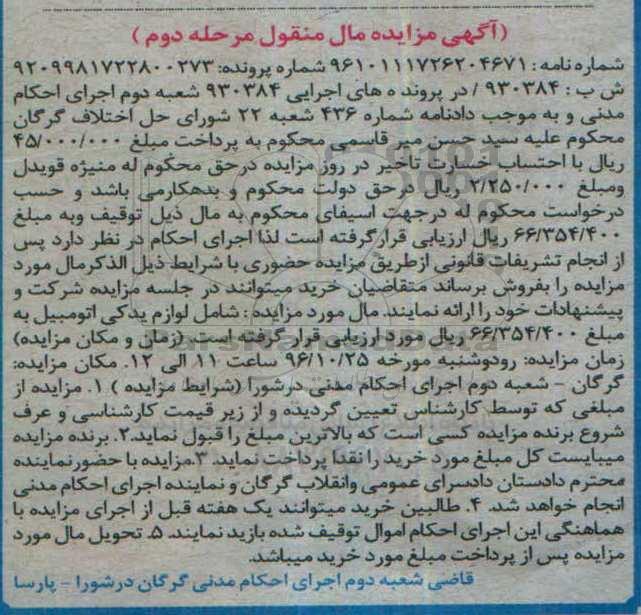 (آگهی مزایده مال منقول مرحله دوم )
شماره نامه : ۹۶۱۰۱۱۱۷۲۶۲۰۴۶۷۱ شماره پرونده: ۹۲۰۹۹۸۱۷۲۲۸۰۰۲۷۳
ش ب : ۹۳۰۳۸۴ / در پرونده های اجرایی ۹۳۰۳۸۴ شعبه دوم اجرای احکام
مدنی و به موجب دادنامه شماره ۴۳۶ شعبه ۲۲ شورای حل اختلاف گرگان
محکوم علیه سید حسن میر قاسمی محکوم به پرداخت مبلغ ۴۵/۰۰۰/۰۰۰
ریال با احتساب خسارت تاخیر در روز مزایده درحق محکوم له منیژه قویدل
ومبلغ ۲/۲۵۰/۰۰۰ ریال درحق دولت محکوم و بدهکارمی باشد و حسب
درخواست محکوم له درجهت اسیفای محکوم به مال ذیل توقیف وبه مبلغ
۶۶/۳۵۴/۴۰۰ ریال ارزیابی قرارگرفته است لذا اجرای احکام در نظر دارد پس
از انجام تشریفات قانونی ازطریق مزایده حضوری با شرایط ذیل الذکرمال مورد
مزایده را بفروش برساند متقاضیان خرید میتوانند در جلسه مزایده شرکت و
پیشنهادات خود را ارائه نمایند. مال مورد مزایده : شامل لوازم یدکی اتومبیل به
مبلغ ۶۶/۳۵۴/۴۰۰ ریال مورد ارزیابی قرار گرفته است (زمان و مکان مزایده)
زمان مزایده: روزدوشنبه مورخه ۹۶/۱۰/۲۵ ساعت ۱۱ الی ۱۲. مکان مزایده:
گرگان - شعبه دوم اجرای احکام مدنی درشورا (شرایط مزایده ) ۱. مزایده از
مبلغی که توسط کارشناس تعیین گردیده و از زیر قیمت کارشناسی و عرف
شروع برنده مزایده کسی است که بالاترین مبلغ را قبول نماید.۲. برنده مزایده
میبایست کل مبلغ مورد خرید را نقدا پرداخت نماید. ۳.مزایده با حضورنماینده
محترم دادستان دادسرای عمومی وانقلاب گرگان و نماینده اجرای احکام مدنی
انجام خواهد شد. ۴. طالبین خرید میتوانند یک هفته قبل از اجرای مزایده با
هماهنگی این اجرای احکام اموال توقیف شده بازدید نمایند. ۵. تحویل مال مورد
مزایده پس از پرداخت مبلغ مورد خرید میباشد.
قاضی شعبه دوم اجرای احکام مدنی گرگان درشورا - پارسا